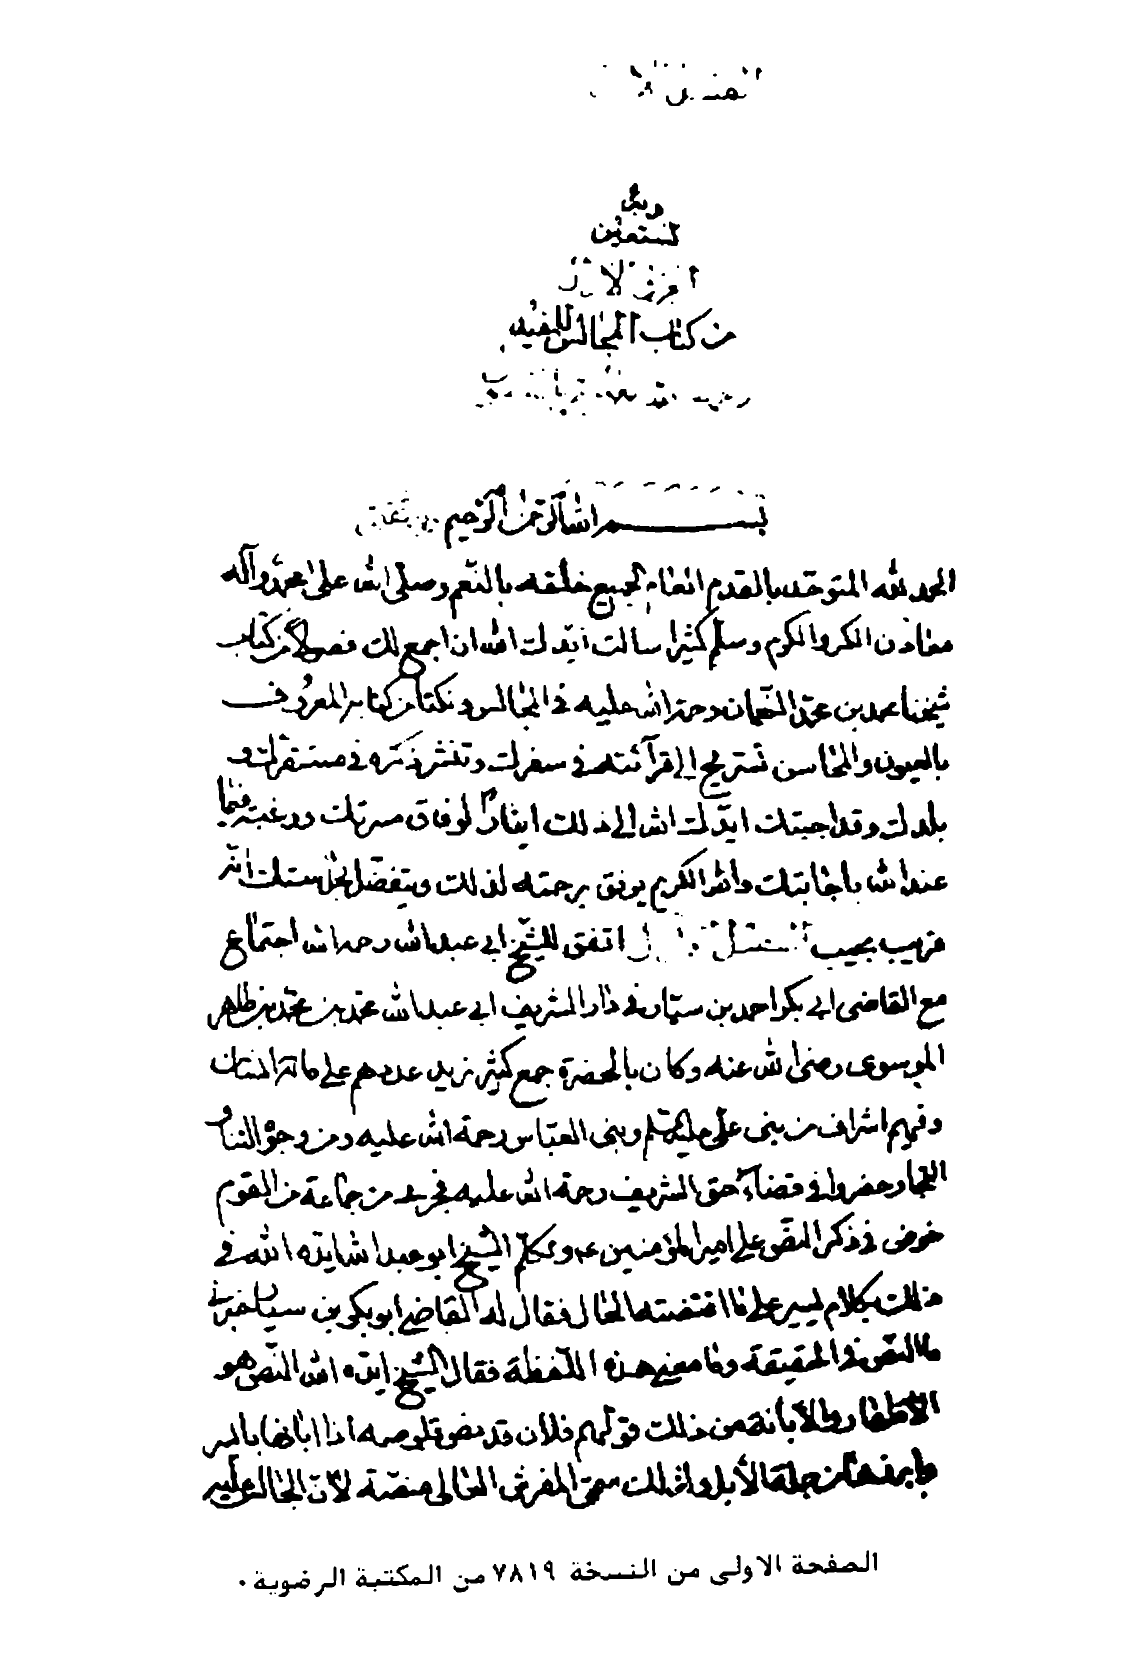 وبه
نستعين
الجزء الاول
من كتاب المجالس للمفيد
بسم الله الرحمن الرحيم
الحمد لله المتوحد بالقدم العام لجميع خلقه بالنعم وصلى الله على محمد وآله
معادن الكرم وسلم كثيرا سالت ايدك الله ان اجمع لك فصولا من كتاب
شيخنا محمد بن محمد النعمان رحمة الله عليه في المجالس ونكتا من كتابه المعروف
بالعيون والمحاسن تستريح الى قرآئته في سفرك وتنشر ذكره في مستقرك و
بلدك وقد اجبتك ايدك الله الى ذلك ايثارا لوفاق مسرتك ورغبة فيما
عند الله باجابتك والله الكريم يوفق برحمته لذلك ويتفضل انه
قريب مجيب اتفق للشيخ ابي عبد الله رحمه الله اجتماع
مع القاضى ابى بكر احمد بن سيار في دار الشريف ابي عبد الله محمد بن محمد بن طاهر
الموسوى رضى الله عنه وكان بالحضرة جمع كثير يزيد عددهم على مائة انسان
وفيهم اشراف من بنى على عليه السلم وبنى العباس رحمة الله عليه ومن وجوه الناس
التجار حضروا في قضاء حق الشريف رحمة الله عليه فجرى من جماعة من القوم
خوض في ذكر النص على امير المؤمنين عم وتكلم الشيخ ابو عبد الله ايده الله في
ذلك بكلام يسير على ما اقتضته الحال فقال له القاضي ابو بكر بن سيار خبرني
ما النص في الحقيقة وما معنى هذه اللفظة فقال الشيخ ايده الله النص هو
الاظهار والابانة من ذلك قولهم فلان قد نص قلوصه اذا ابانها بالسير
وابرزها من جملة الأبل ولذلك سمى المفرش العالى منصة لان الجالس عليه
الصفحة الاولى من النسخة ٧٨١٩ من المكتبة الرضوية .